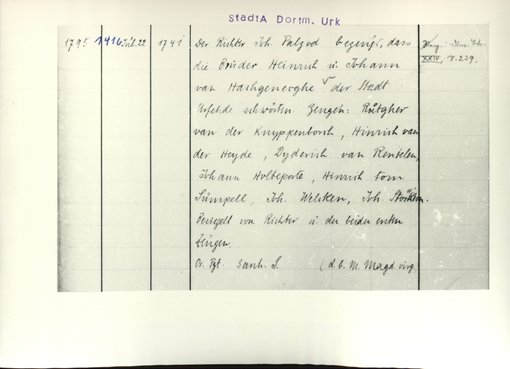 StadtA Dortm. Urk
1795 1416 Jul. 22 1741 Der Richter Joh. Palzod bezeugt, dass
die Brüder Heinrich u. Johann
van Hashgeneoghe der Stadt
Urfehde schwörten. Zeugen: Rütgher
van der Knyppenborch, Hinrich van
der Heyde, Dyderich van Renselen,
Johann Holteporte, Hinrich tom
Sümpell, Joh. Welsken, Joh.
Besiegelt von Richter u. den beiden ersten
Zeugen.
Or. Pgt. S. (d. b. M. Magd. virg.
XXIV, S. 239.